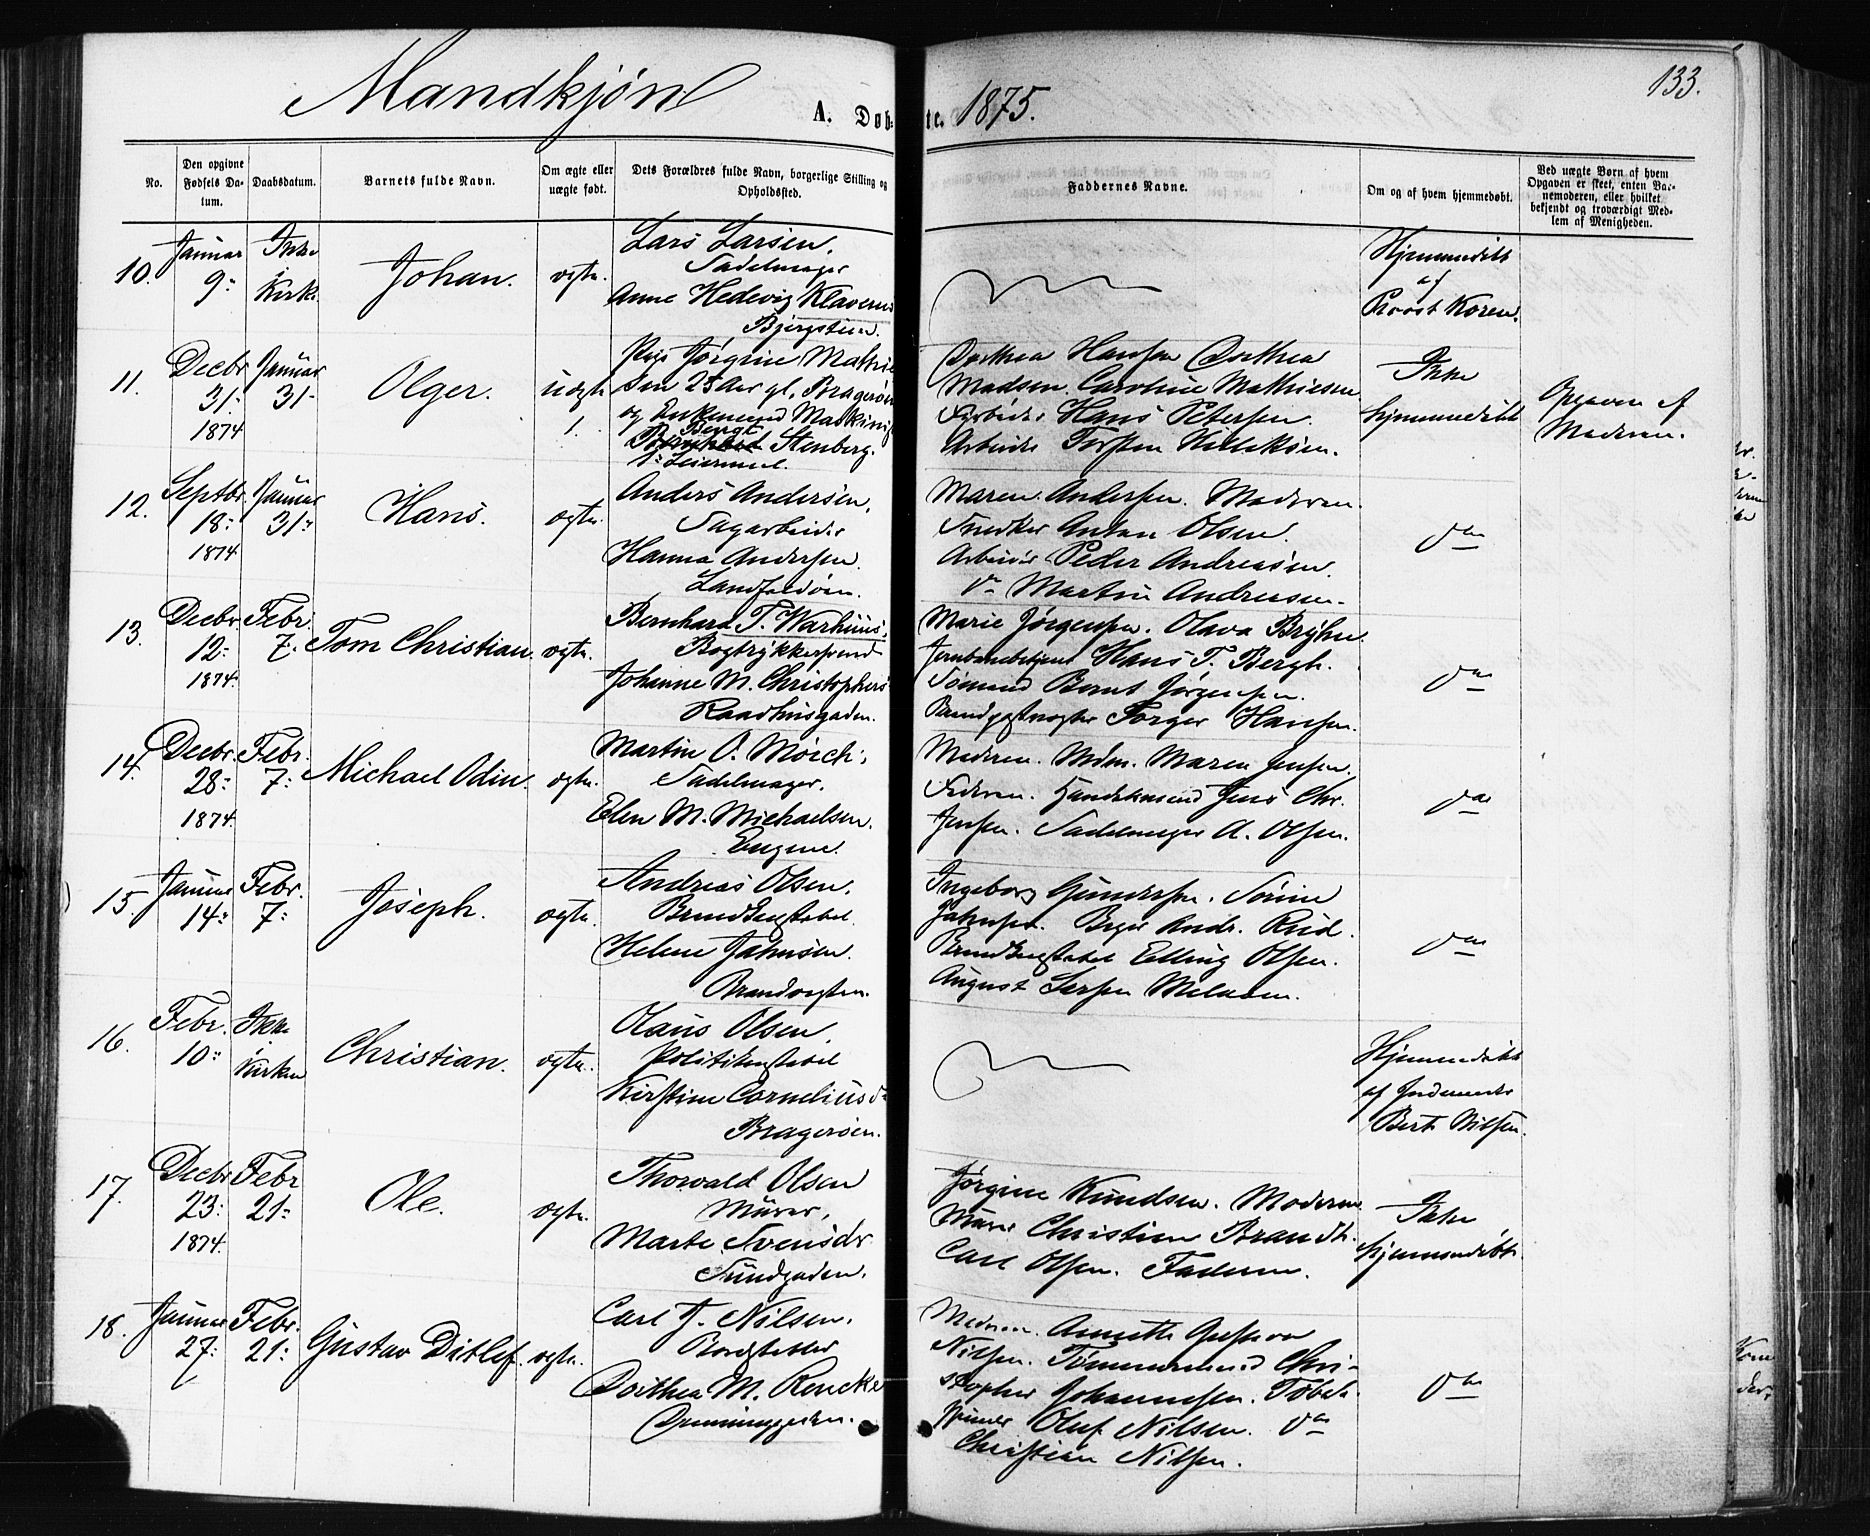 Mandkjøn
A. Døbte. 1875.
133.
No.
Den opgivne Fødsels Datum.
Daabsdatum.
Barnets fulde Navn.
Om ægte eller uægte født.
Dets Forældres fulde Navn, borgerlige Stilling og Opholdssted.
Faddernes Navne.
Om og af hvem hjemmedøbt.
Ved uægte Børn af hvem Opgaven er skeet, enten Barnemoderen, eller hvilket bekjendt og troværdigt Medlem af Menigheden.
10.
Januar 9:
Ikke i Kirke
Johan.
ægte.
Lars Larsen,
Sadelmager
Anne Hedevig Klavern
Bjergstien.
Hjemmedøbt
af
Provst Koren.
11.
Decbr 31: 1874
Januar 31-
Olger.
uægte 1.
Pige Jørgine Mathie
sen 28 Aar gl. Bragerøen
og Enkemand Maskinist
Bengt
Stenberg.
1ste Leiermaal.
Dorthea Hansen Dorthea
Madsen Caroline Mathiesen
Arbeider Hans Petersen.
Arbeider Torsten
Ikke
hjemmedøbt
Opgaven af
Moderen.
12.
Septbr. 18: 1874
Januar 31:
Hans.
ægte.
Anders Andersen,
Sagarbeider
Hanna Andersen.
Landfaldøen.
Maren Andersen. Moderen.
Snedker Anton Olsen.
Arbeider Peder Andreasen.
Do Martin Andreasen.
Do
13.
Decbr. 12: 1874.
Febr. 7.
Tom Christian.
ægte.
Bernhard T. Warhuus,
Bogtrykkersvend
Johanne M. Christophers
Raadhusgaden.
Marie Jørgensen. Olava Bryhn.
Jernbanebetjent Hans T. Bergh.
Sømand Bernt Jørgensen.
Torger Hansen.
Do
14.
Decbr. 28: 1874.
Febr. 7:
Michael Odin.
ægte.
Martin O. Mørch,
Sadelmager.
Elen M. Michaelsen.
Engene.
Moderen. Mdm. Maren Jensen.
Faderen. Handelsmand Jens Chr.
Jensen. Sadelmager A. Olsen.
Do
15.
Januar 14:
Febr. 7:
Joseph.
ægte.
Andreas Olsen,
Brandkonstabel
Helene Jahnsen.
Brandvagten.
Ingeborg Gundersen. Sørine
Jahnsen. Andr. Ruud.
Brandkonstabel Elling Olsen.
August
Do
16.
Febr. 10:
Ikke i Kirken
Christian.
ægte.
Olaus Olsen,
Politikonstabel
Kirstine Corneliusd.
Bragerøen.
Hjemmedøbt
af Jordemoder
Bert. Nilsen.
17.
Decbr 23: 1874.
Febr 21:
Ole.
ægte.
Thorvald Olsen
Murer,
Marte Svensdr
Sundgaden.
Jørgine Knudsen. Moderen
Murer Christian Brandt.
Carl Olsen. Faderen.
Ikke
hjemmedøbt.
18.
Januar 27:
Febr. 21:
Gustav Ditlef.
ægte.
Carl J. Nilsen,
Bordstabler
Dorthea M. Rencke
Moderen. Annette Gustava
Nilsen. Tømmermand Chri-
stopher Johannesen. Tobak-
spinder Oluf Nilsen. Do
Christian Nilsen.
Do